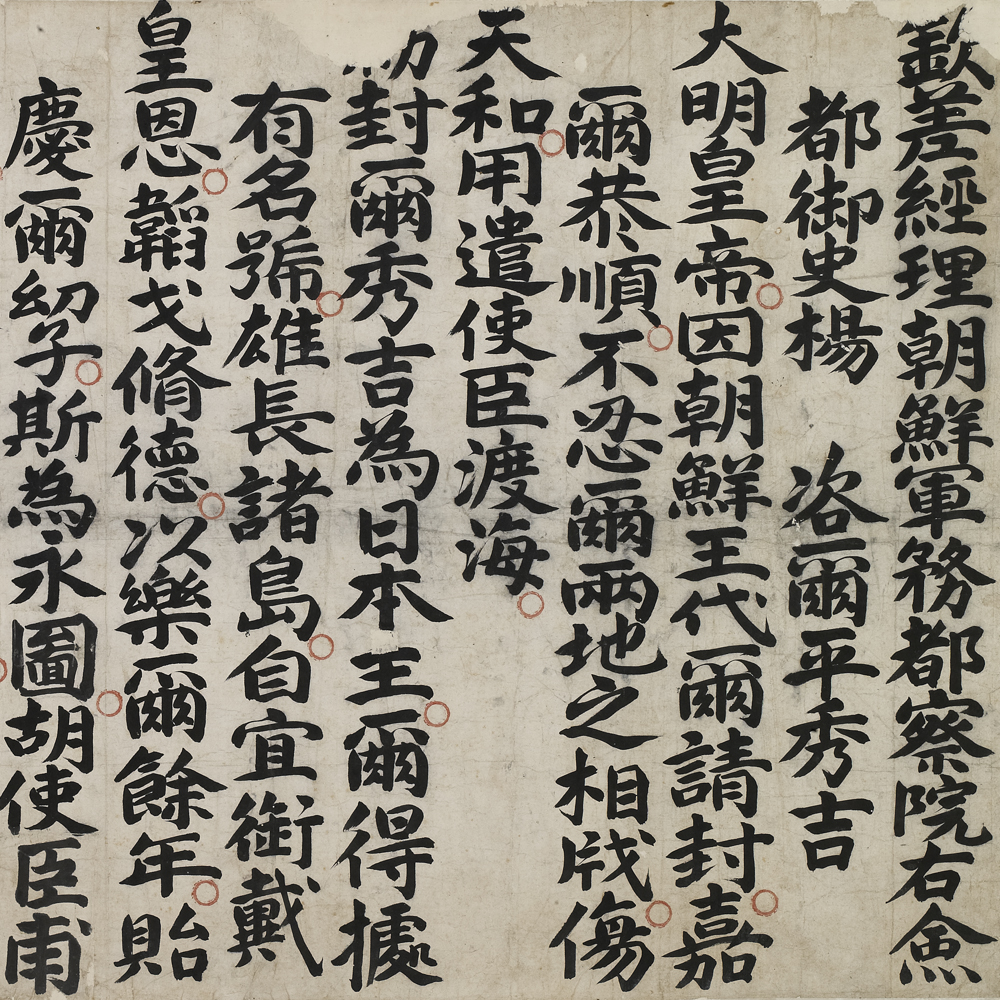 欽差經理朝鮮軍務都察院右僉
都御史楊 咨爾平秀吉
大明皇帝因朝鮮王代爾請封嘉
爾恭順不忍爾兩地之相戕傷
天和用遣使臣渡海
封爾秀吉為日本王爾得據
有名號雄長諸島自宜銜戴
皇恩韜戈脩德以樂爾餘年貽
慶爾幼子斯為永圖胡使臣甫